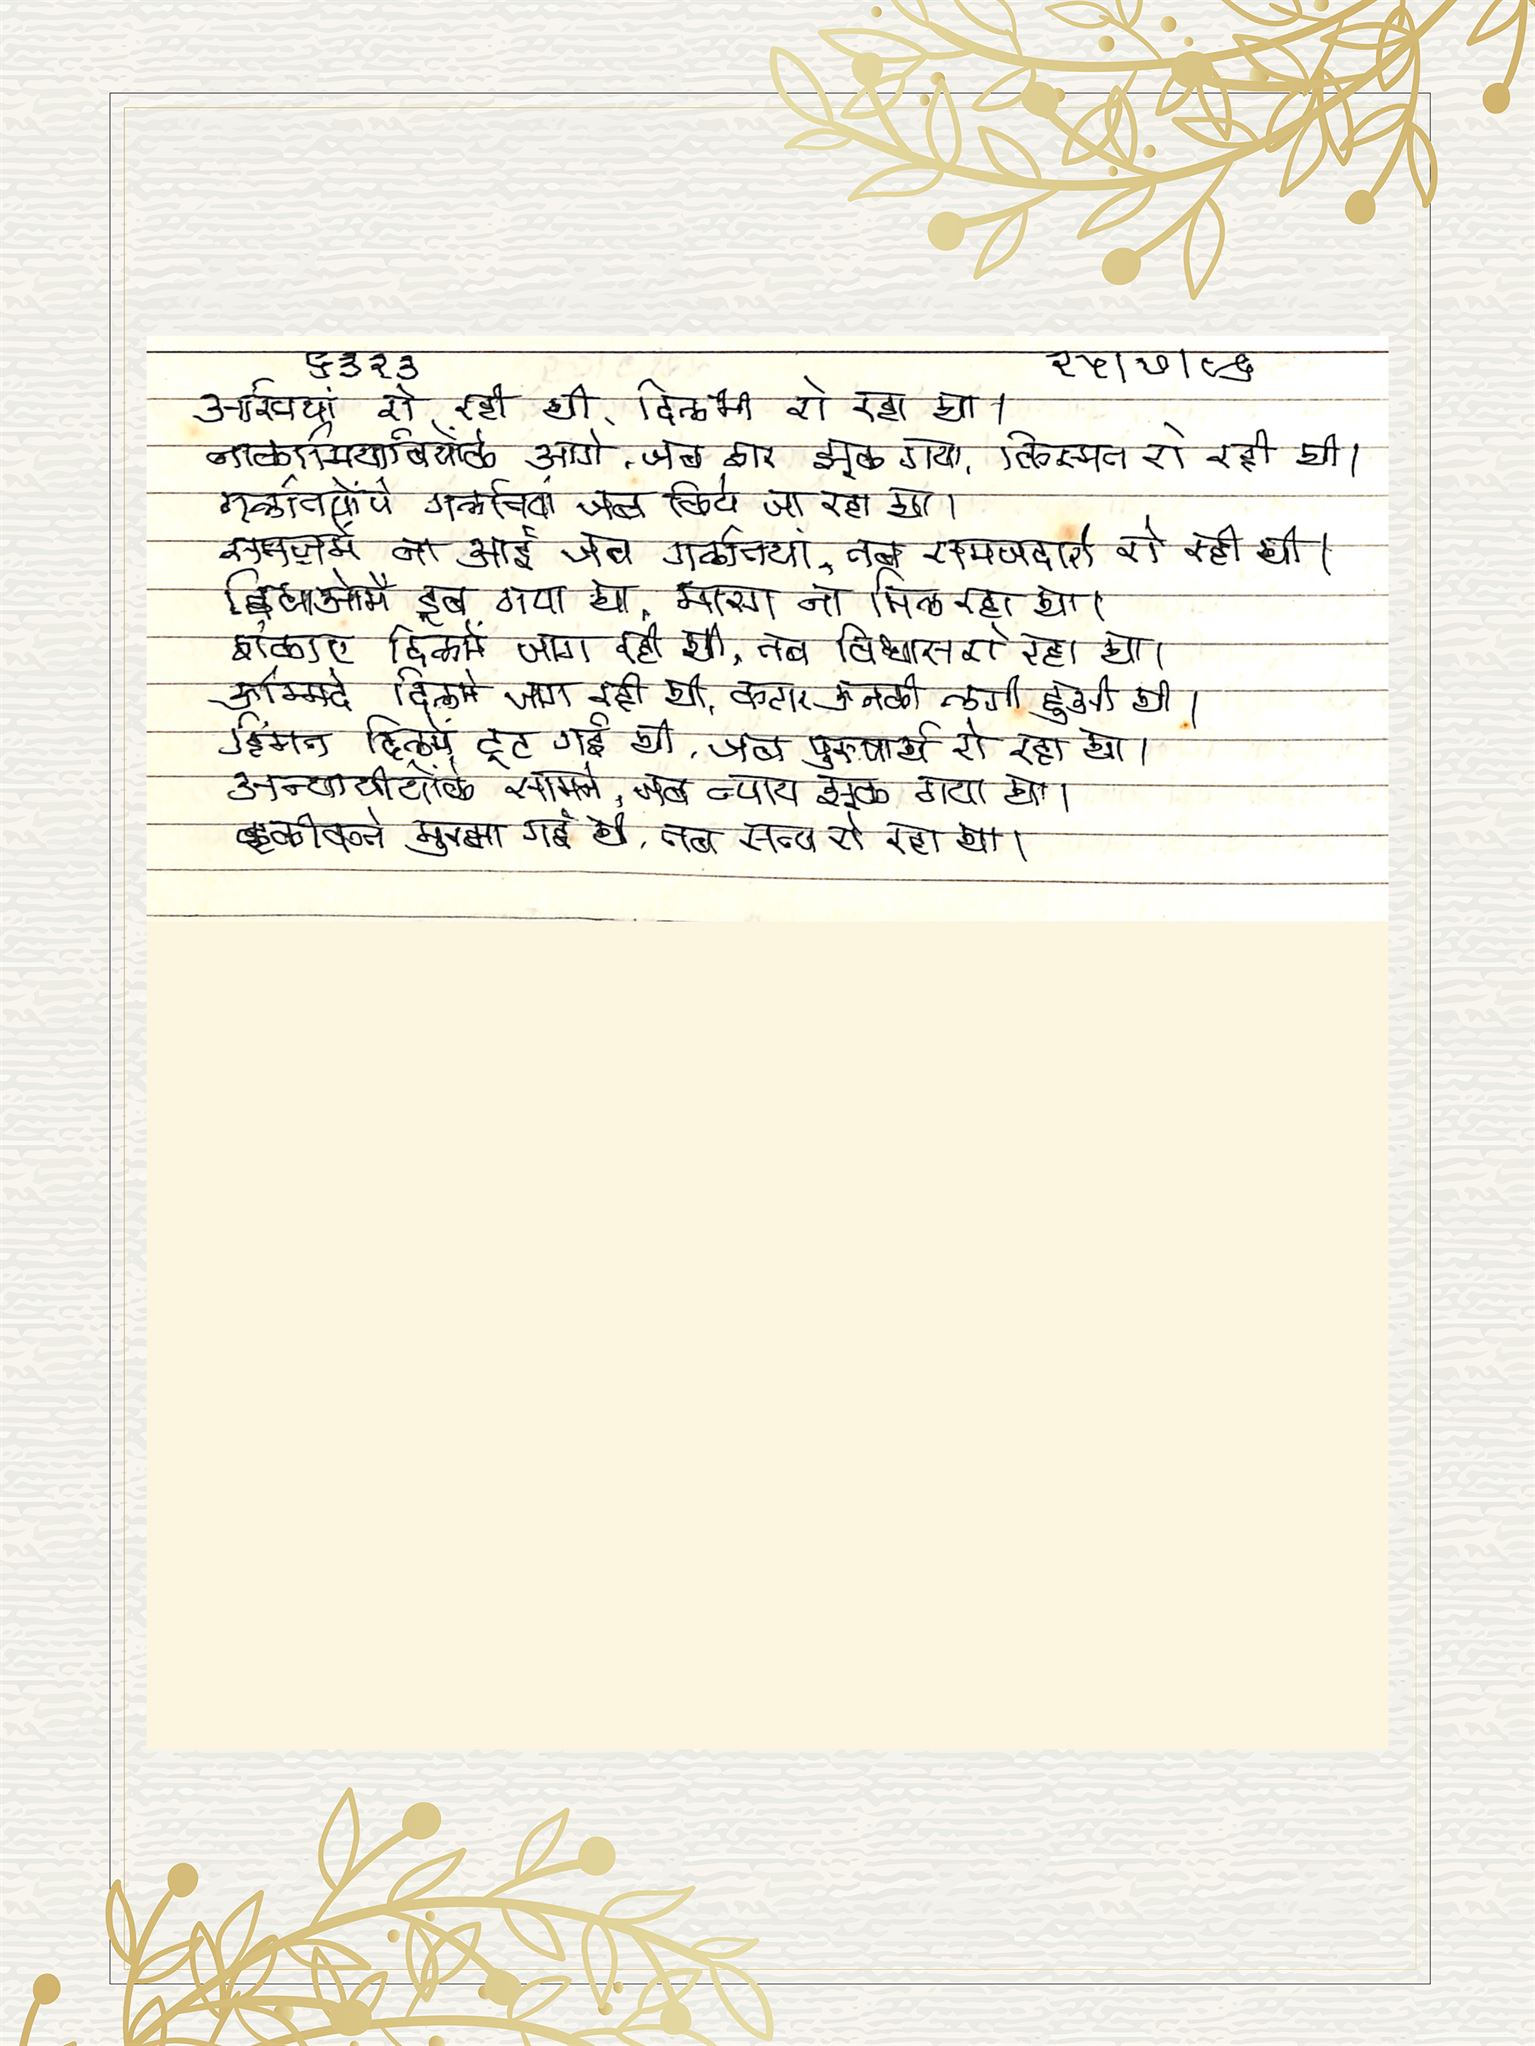 ५३२३ २५/७/९६
अखियां रो रही थी, दिलभी रो रहा था।
नाकामियाबियोंके आगे, जब हार झूक गया, किस्मत रो रही थी।
गलतियोंपे गलतियां जब किये जा रहा था।
समजमें ना आई जब गलतियां, तब समजदारी रो रही थी।
द्विधाओमें डूब गया था, मारग ना मिल रहा था।
शंकाए दिलमें जाग रही थी, तब विश्वास रो रहा था।
दिलमें जाग रही थी, कतार उनकी लगी हुई थी।
हिंमत दिलमें टूट गई थी, जब पुरुषार्थ रो रहा था।
अन्यायीयोंके सामने, जब न्याय झूक गया था।
हकीकते मुरझा गई थी, तब सत्य रो रहा था।